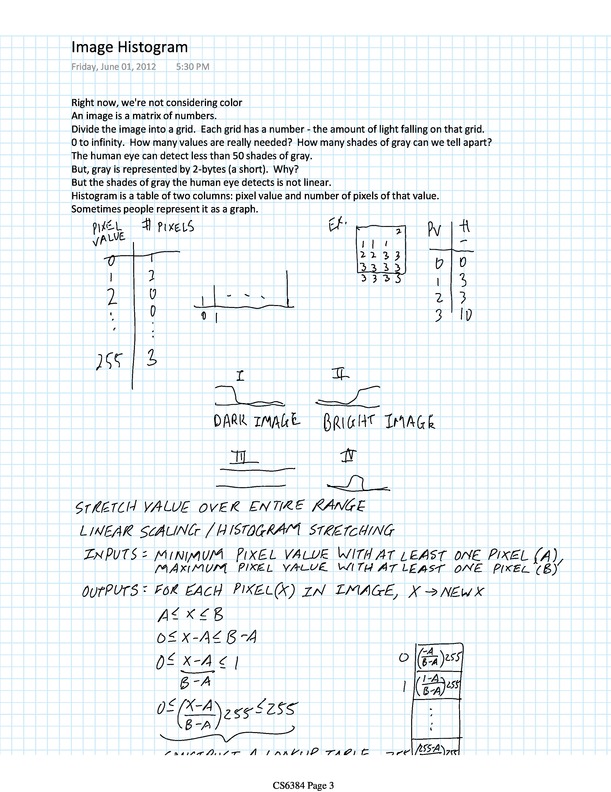 Image Histogram
Friday, June 01, 2012 5:30 PM
Right now, we're not considering color
An image is a matrix of numbers.
Divide the image into a grid. Each grid has a number - the amount of light falling on that grid.
0 to infinity. How many values are really needed? How many shades of gray can we tell apart?
The human eye can detect less than 50 shades of gray.
But, gray is represented by 2-bytes (a short). Why?
But the shades of gray the human eye detects is not linear.
Histogram is a table of two columns: pixel value and number of pixels of that value.
Sometimes people represent it as a graph.
PIXEL VALUE # PIXELS
0 1
1 3
2 0
: 0
: :
255 3
0 1
Ex.
2
1 1 1
2 2 3 3
3 3 3 3
3 3 3 3
PV #
0 0
1 3
2 3
3 10
I II
DARK IMAGE BRIGHT IMAGE
III IV
STRETCH VALUE OVER ENTIRE RANGE
LINEAR SCALING / HISTOGRAM STRETCHING
INPUTS: MINIMUM PIXEL VALUE WITH AT LEAST ONE PIXEL (A),
MAXIMUM PIXEL VALUE WITH AT LEAST ONE PIXEL (B)
OUTPUTS: FOR EACH PIXEL(X) IN IMAGE, X → NEWX
A ≤ X ≤ B
0 ≤ X-A ≤ B-A
0 ≤ X-A / B-A ≤ 1
0 ≤ (X-A / B-A) 255 ≤ 255
0 (-A / B-A) 255
1 (1-A / B-A) 255
:
CONSTRUCT A LOOKUP TABLE 255 (255-A) 255
CS6384 Page 3